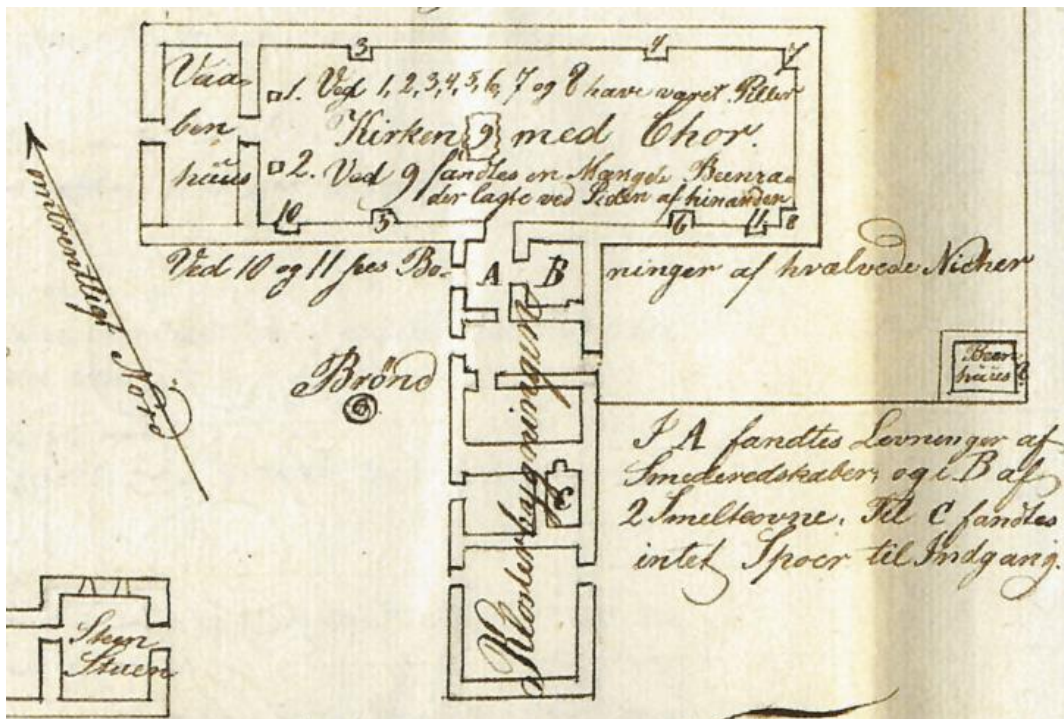 Vaa-
ben
hüüs
3
4
7
1. Ved 1, 2, 3, 4, 5, 6, 7 og 8 have været Piller
Kirken 9 med Chor.
2. Ved 9 fandtes en Mængde Beenra-
der lagte ved Siden af hinanden
10
5
6
11
8
Ved 10 og 11 sees Bo-
A
B
ninger af hvælvede Nicher
omtrentligt Nord
Brönd
Klosterbygningen
C
Been
hüüs
I A fandtes Levninger af
Smederedskaber, og i B af
2 Smelteovne. Til C fandtes
intet Spoer til Indgang.
Steen
Stuen